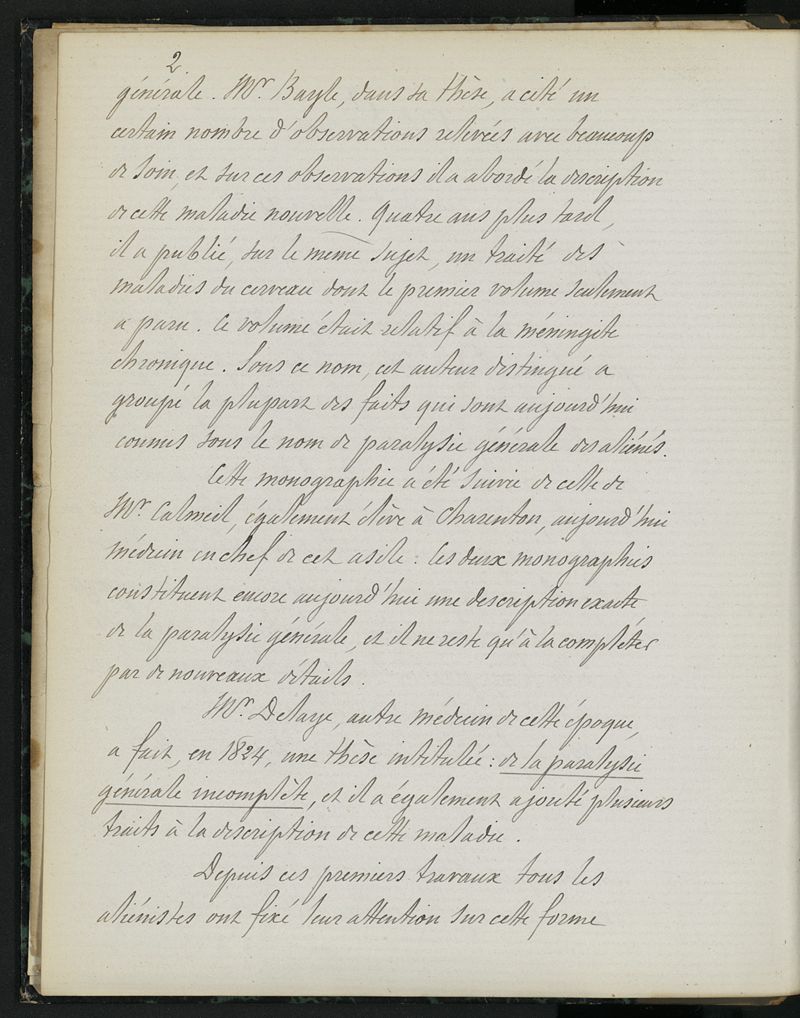 2
générale. Mr. Bayle, dans sa thèse, a cité un
certain nombre d'observations relevées avec beaucoup
de soin, et sur ces observations il a abordé la description
de cette maladie nouvelle. Quatre ans plus tard,
il a publié, sur le même sujet, un traité des
maladies du cerveau dont le premier volume seulement
a paru. Ce volume était relatif à la méningite
chronique. Sous ce nom, cet auteur distingué a
groupé la plupart des faits qui sont aujourd'hui
connus sous le nom de paralysie générale des aliénés.
Cette monographie a été suivie de celle de
Mr. Calmeil, également élève à Charenton, aujourd'hui
médecin en chef de cet asile : les deux monographies
constituent encore aujourd'hui une description exacte
de la paralysie générale, et il ne reste qu'à la compléter
par de nouveaux détails.
Mr. Delaye, autre médecin de cette époque,
a fait, en 1824, une thèse intitulée : de la paralysie
générale incomplète, et il a également ajouté plusieurs
traits à la description de cette maladie.
Depuis ces premiers travaux tous les
aliénistes ont fixé leur attention sur cette forme